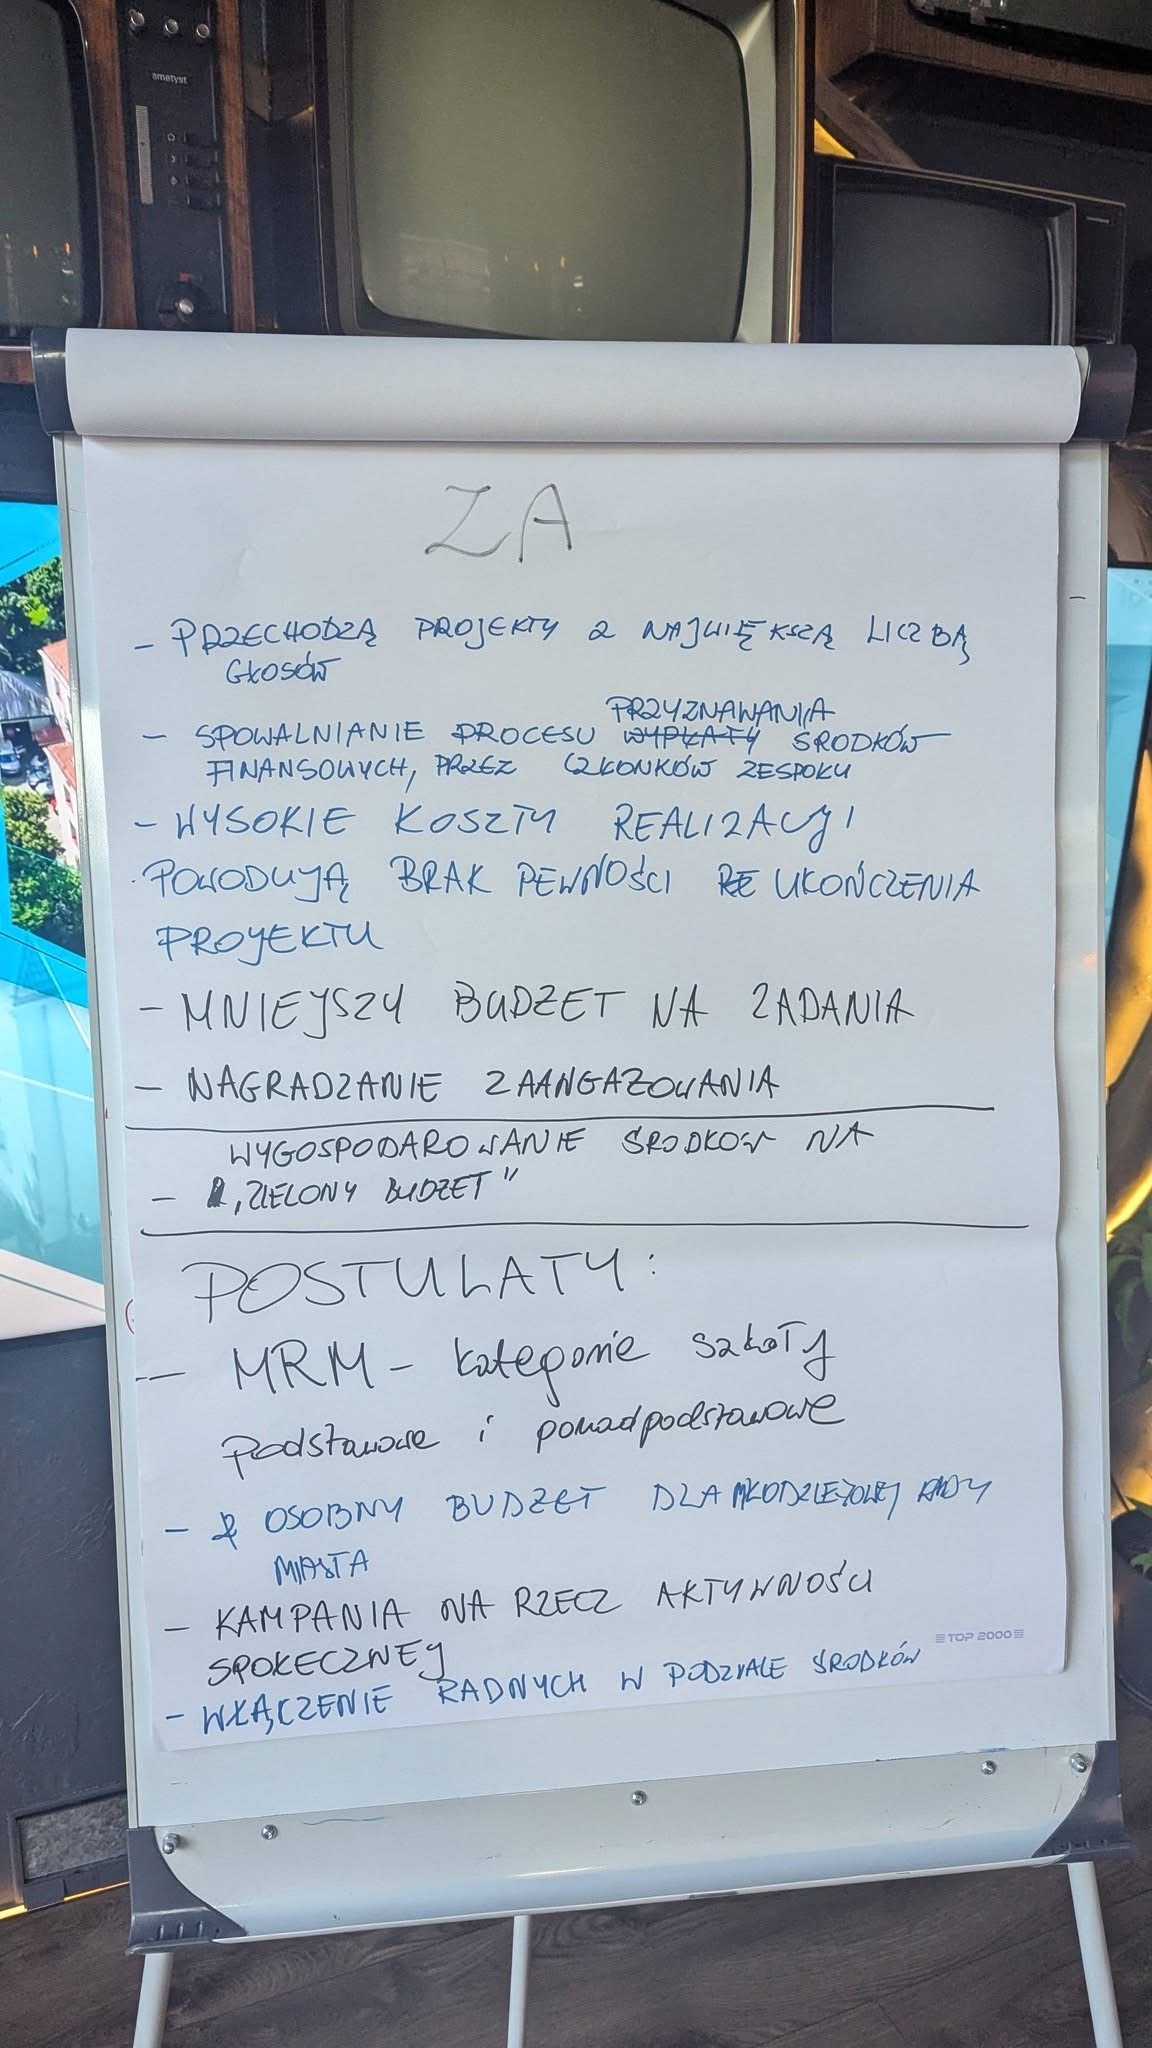 ametyst
ZA
- PRZECHODZĄ PROJEKTY Z NAJWIĘKSZĄ LICZBĄ
GŁOSÓW
PRZYZNAWANIA
- SPOWALNIANIE PROCESU WYPŁATY ŚRODKÓW
FINANSOWYCH, PRZEZ CZŁONKÓW ZESPOŁU
- WYSOKIE KOSZTY REALIZACJI
POWODUJĄ BRAK PEWNOŚCI UKOŃCZENIA
PROJEKTU
- MNIEJSZY BUDŻET NA ZADANIA
- NAGRADZANIE ZAANGAŻOWANIA
WYGOSPODAROWANIE ŚRODKÓW NA
- „ZIELONY BUDŻET"
POSTULATY:
- MRM - kategorie szkoły
podstawowe i ponadpodstawowe
- OSOBNY BUDŻET DLA MŁODZIEŻOWEJ RADY
MIASTA
- KAMPANIA NA RZECZ AKTYWNOŚCI
SPOŁECZNEJ
TOP 2000
- WŁĄCZENIE RADNYCH W PODZIALE ŚRODKÓW